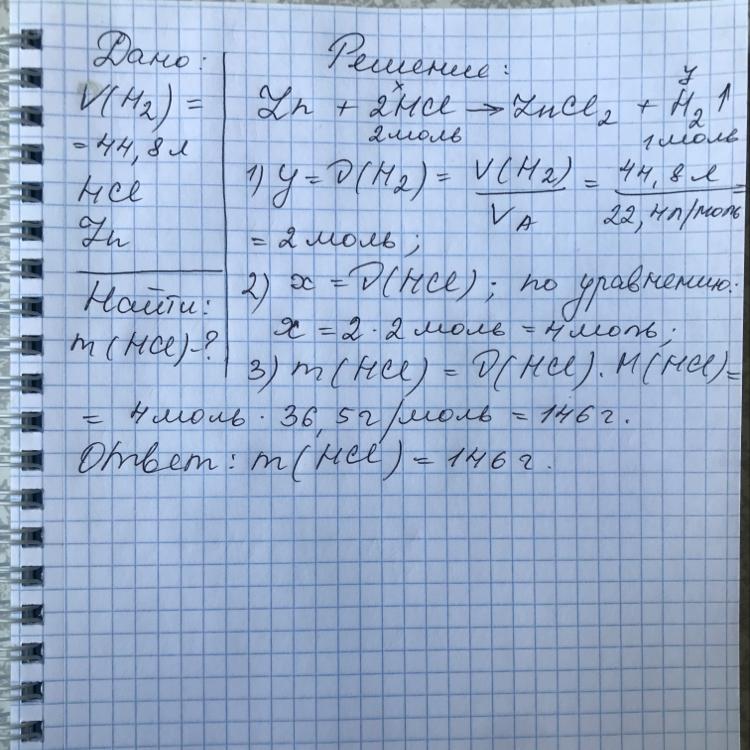 Дано:
V(H₂) =
= 44,8 л
HCl
Zn
Найти:
m(HCl)-?
Решение:
x y
Zn + 2HCl → ZnCl₂ + H₂↑
2 моль 1 моль
1) y = ν(H₂) = V(H₂) / V_A = 44,8 л / 22,4 л/моль =
= 2 моль;
2) x = ν(HCl); по уравнению:
x = 2 · 2 моль = 4 моль;
3) m(HCl) = ν(HCl) · M(HCl) =
= 4 моль · 36,5 г/моль = 146 г.
Ответ: m(HCl) = 146 г.